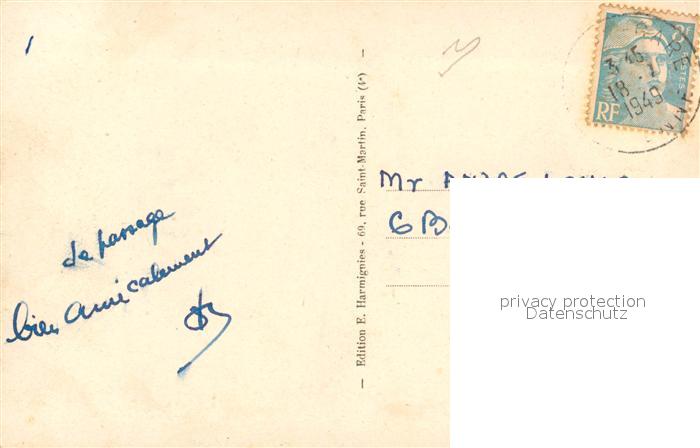 de passage
bien amicalement
— Edition E. Harmignies - 69, rue Saint-Martin, Paris (4e) —
RF
POSTES
3 45
18 - 1
1949
Mr
6 B
privacy protection
Datenschutz